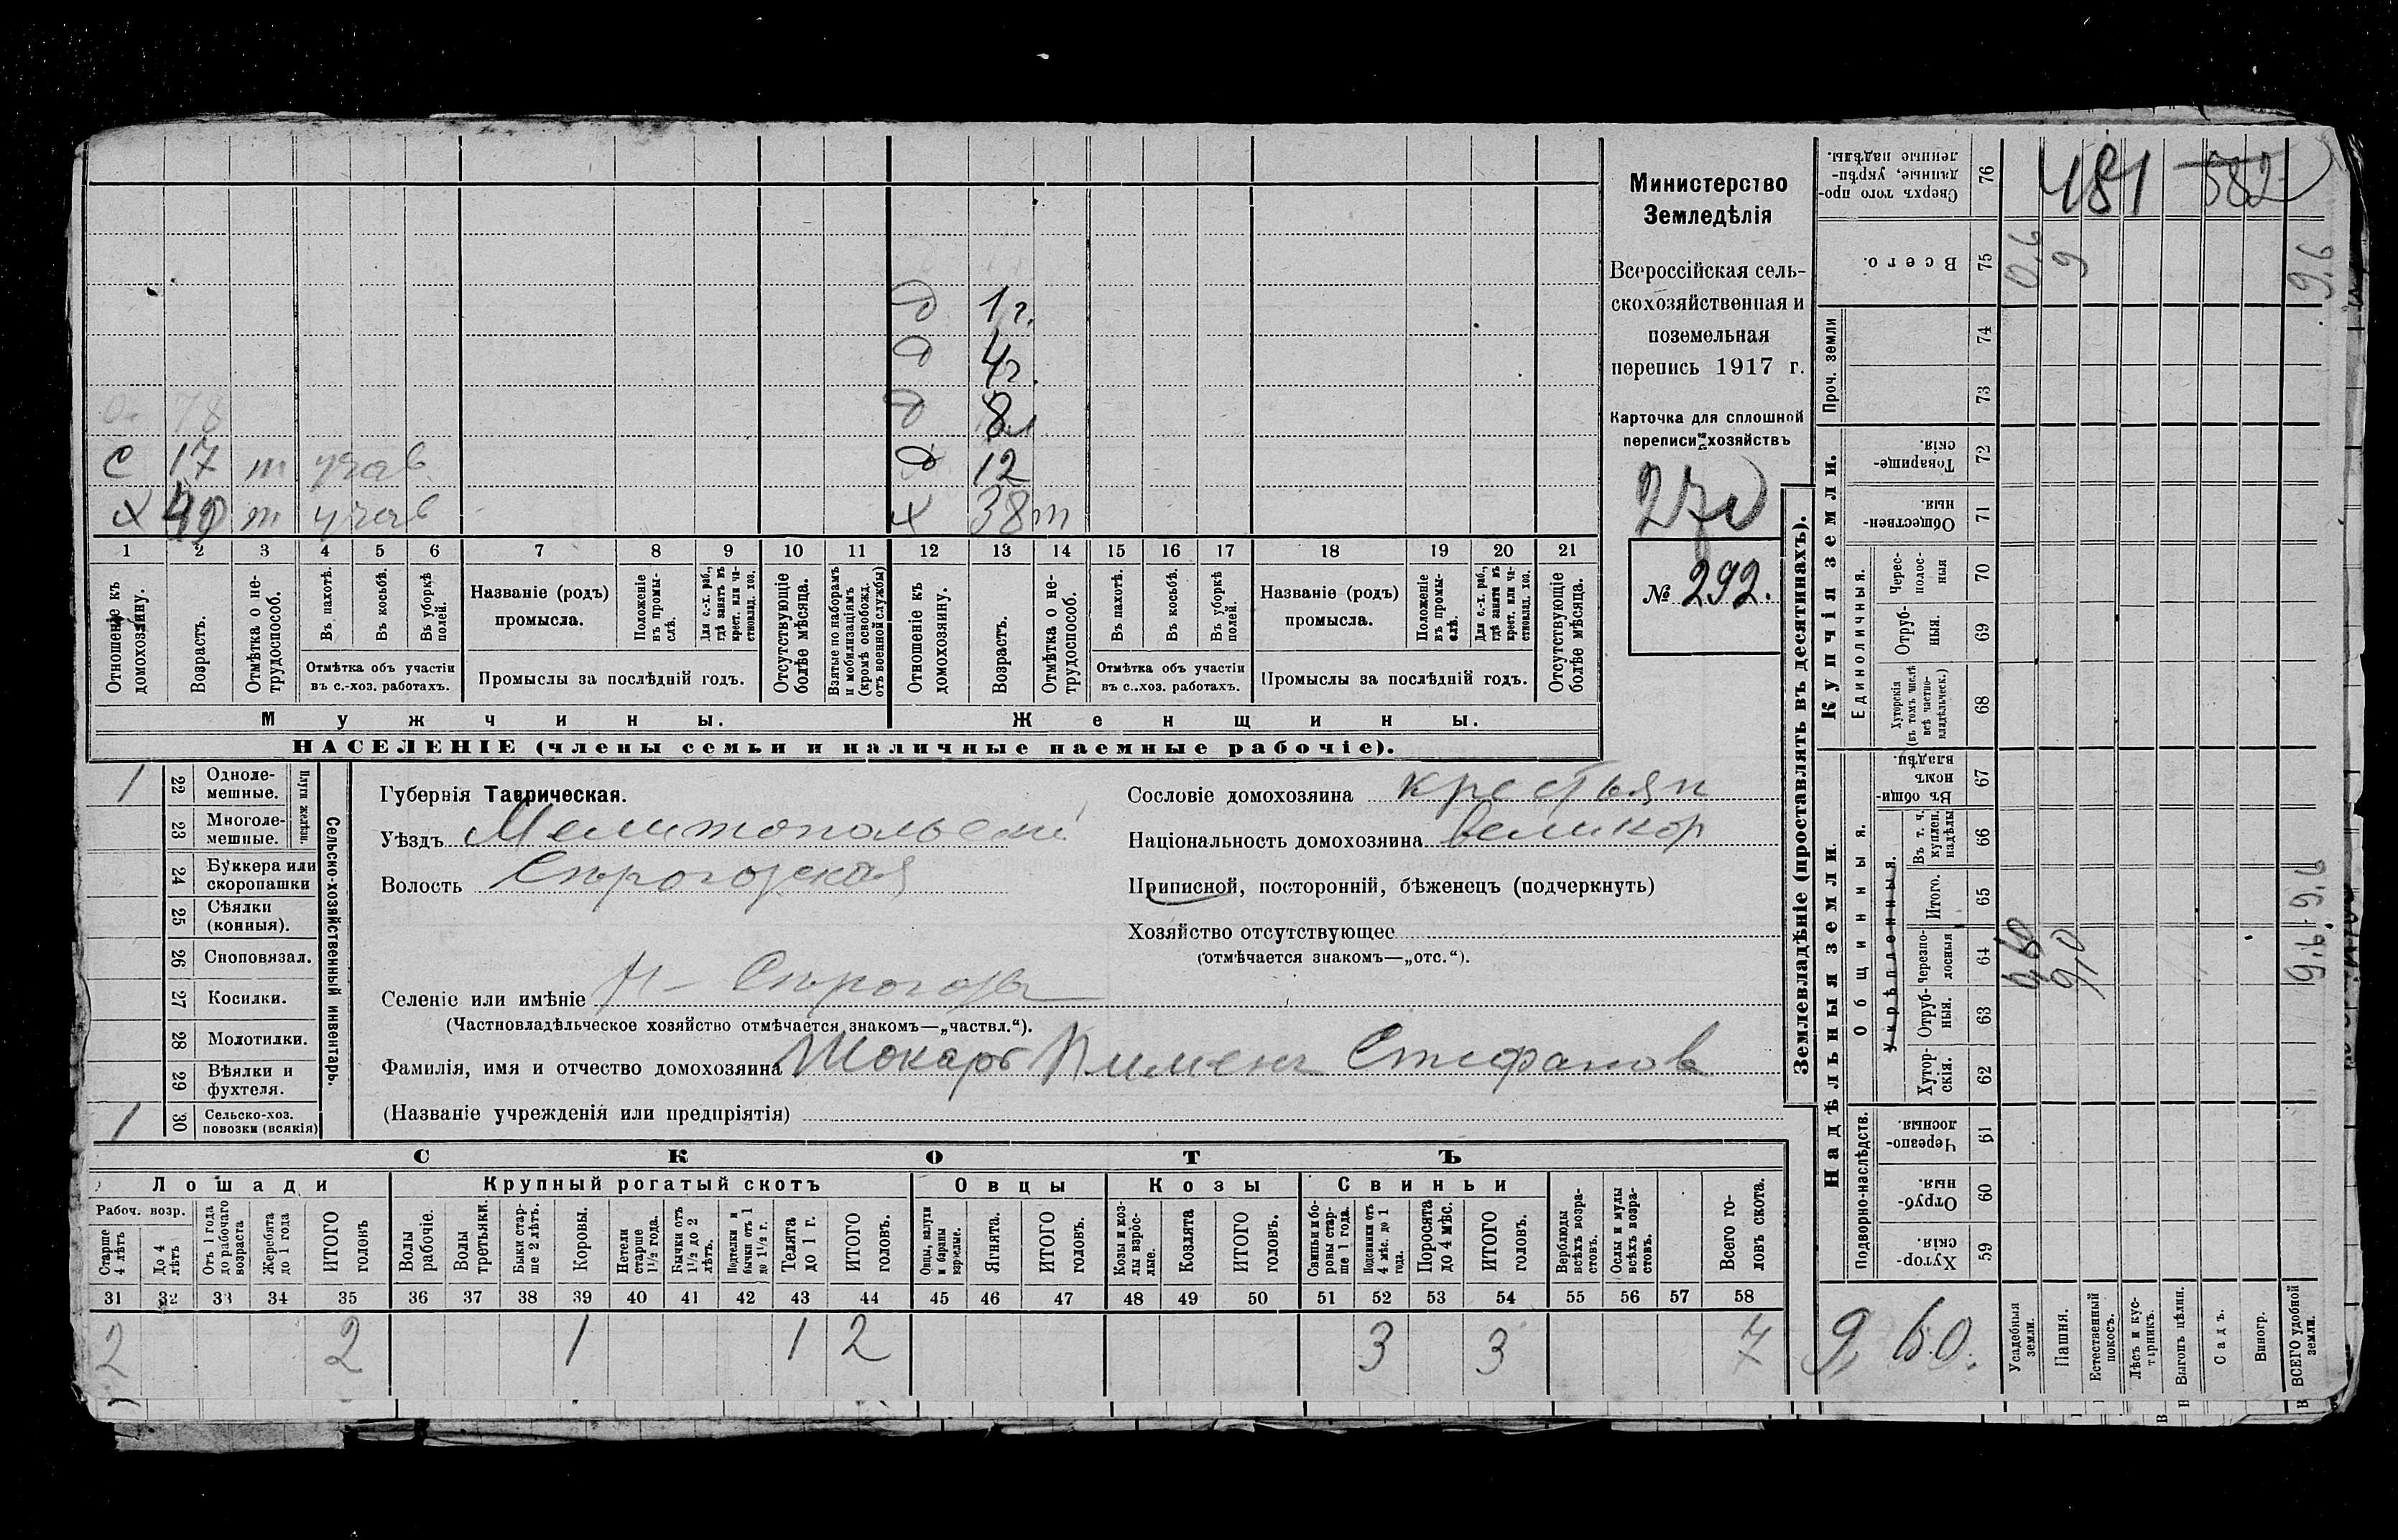 Министерство
Земледѣлія
Всероссійская сель-
скохозяйственная и
поземельная
перепись 1917 г.
Карточка для сплошной
переписи хозяйствъ
270
№ 292.
481 582
д 1 г.
д 4 г.
д 8 л
78 д
с 17 т учав д 12
х т учав х 38 т
1 2 3 4 5 6 7 8 9 10 11 12 13 14 15 16 17 18 19 20 21
Отношеніе къ домохозяину.
Возрастъ.
Отмѣтка о не-трудоспособ.
Въ пахотѣ.
Въ косьбѣ.
Въ уборкѣ полей.
Отмѣтка объ участіи
въ с.-хоз. работахъ.
Названіе (родъ)
промысла.
Положеніе въ промы-слѣ.
Для с.-х. раб., гдѣ занятъ въ крест. или ча-стновлад. хоз.
Промыслы за послѣдній годъ.
Отсутствующіе болѣе мѣсяца.
Взятые по наборамъ и мобилизаціямъ (кромѣ освобожд. отъ военной службы)
Отношеніе къ домохозяину.
Возрастъ.
Отмѣтка о не-трудоспособ.
Въ пахотѣ.
Въ косьбѣ.
Въ уборкѣ полей.
Отмѣтка объ участіи
въ с.-хоз. работахъ.
Названіе (родъ)
промысла.
Положеніе въ промы-слѣ.
Для с.-х. раб., гдѣ заняты въ крест. или ча-стновлад. хоз.
Промыслы за послѣдній годъ.
Отсутствующіе болѣе мѣсяца.
Мужчины. Женщины.
НАСЕЛЕНІЕ (члены семьи и наличные наемные рабочіе).
Сельско-хозяйственный инвентарь.
Плуги желѣзн.
1 22 Одноле-мешные.
23 Многоле-мешные.
24 Буккера или скоропашки
25 Сѣялки (конныя).
26 Сноповязал.
27 Косилки.
28 Молотилки.
29 Вѣялки и фухтеля.
1 30 Сельско-хоз. повозки (всякія)
Губернія Таврическая.
Уѣздъ Мелитопольскі
Волость Сърогозская
Селеніе или имѣніе Н - Сърогозы
(Частновладѣльческое хозяйство отмѣчается знакомъ—„частвл.“).
Фамилія, имя и отчество домохозяина Пименъ Стефанов
(Названіе учрежденія или предпріятія)
Сословіе домохозяина крестьян
Національность домохозяина великор
Приписной, посторонній, бѣженецъ (подчеркнуть)
Хозяйство отсутствующее
(отмѣчается знакомъ—„отс.“).
СКОТЪ
Лошади Крупный рогатый скотъ Овцы Козы Свиньи
Рабоч. возр.
Старше 4 лѣтъ
До 4 лѣтъ
Отъ 1 года до рабочаго возраста
Жеребята до 1 года
ИТОГО головъ
Волы рабочіе.
Волы третьяки.
Быки стар-ше 2 лѣтъ.
Коровы.
Нетели старше 1½ года.
Бычки отъ 1½ до 2 лѣтъ.
Подтелки и бычки отъ 1 до 1½ г.
Телята до 1 г.
ИТОГО головъ.
Овцы, валухи и бараны взрослые.
Ягнята.
ИТОГО головъ.
Козы и коз-лы взрос-лые.
Козлята
ИТОГО головъ.
Свиньи и бо-ровы стар-ше 1 года.
Подсвинки отъ 4 мѣс. до 1 года.
Поросята до 4 мѣс.
ИТОГО головъ.
Верблюды всѣхъ возра-стовъ.
Ослы и мулы всѣхъ возра-стовъ.
Всего го-ловъ скота.
31 32 33 34 35 36 37 38 39 40 41 42 43 44 45 46 47 48 49 50 51 52 53 54 55 56 57 58
2 2 1 1 2 3 3 7
Землевладѣніе (проставлять въ десятинахъ).
Надѣльныя земли. Купчія земли. Проч. земли
Подворно-наслѣдств.
Общинныя.
Укрѣпленныя.
Единоличныя.
Сверхъ того про-данные, укрѣп-ленные надѣлы. 76
Всего. 75 0,6 9 9.6
74
73
Товарище-скія. 72
Обществен-ныя. 71
Черес-полос-ныя 70
Отруб-ныя. 69
Хуторскія (въ томъ числѣ всѣ частно-владѣльческ.) 68
Въ общи-номъ владѣн. 67
Въ т. ч. куплен. надѣлы 66
Итого. 65 9,6
Черезпо-лосныя 64 9,0 9.6.
Отруб-ныя. 63
Хутор-скія. 62
Черезпо-лосныя. 61
Отруб-ныя. 60
Хутор-скія. 59
9, 60.
Усадебныя земли.
Пашня.
Естественный покосъ.
Лѣсъ и кус-тарникъ.
Выгонъ цѣлин.
Садъ.
Виногр.
ВСЕГО удобной земли.